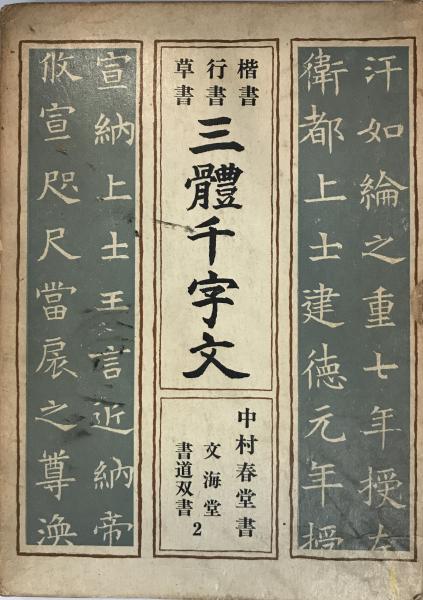 汗如綸之重七年授左
衛都上士建徳元年授
楷書
行書
草書
三體千字文
中村春堂書
文海堂
書道双書2
宣納上士王言近納帝
攸宣咫尺當扆之尊渙